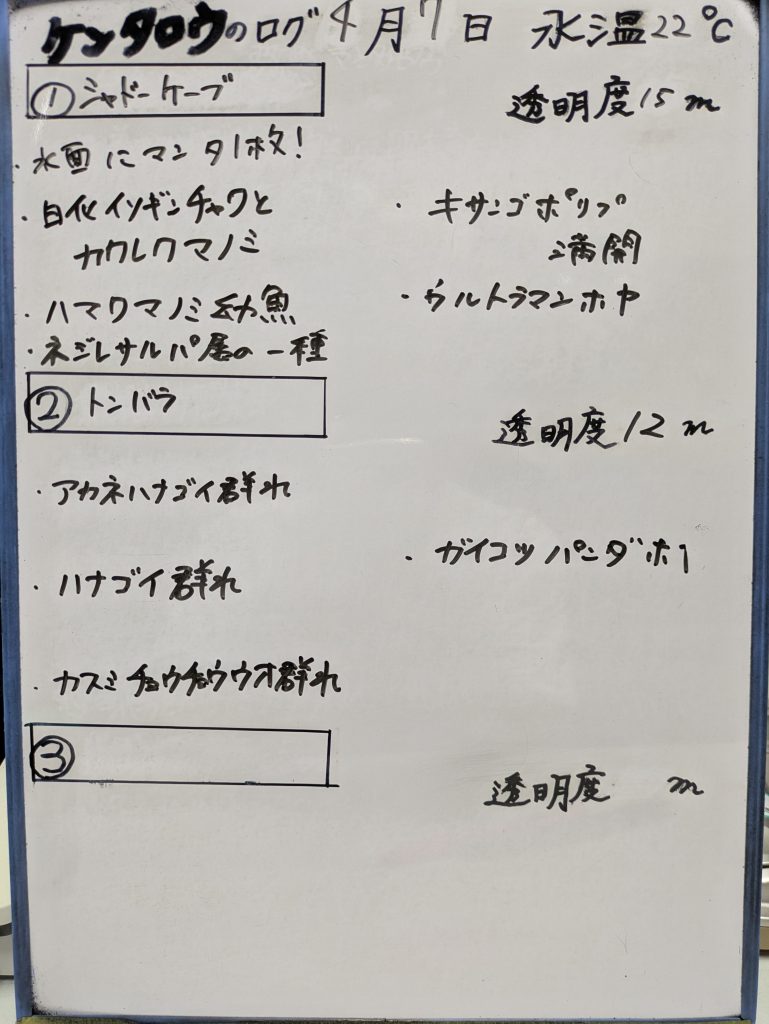 ケンタロウのログ 4月7日 水温22℃
① シャドーケーブ
透明度15m
・水面にマンタ1枚!
・白化イソギンチャクと
カクレクマノミ
・キサンゴポリプ
満開
・ハマクマノミ幼魚
・ウルトラマンホヤ
・ネジレサルパ属の一種
② トンバラ
透明度12m
・アカネハナゴイ群れ
・ガイコツパンダホヤ
・ハナゴイ群れ
・カスミチョウチョウウオ群れ
③
透明度 m